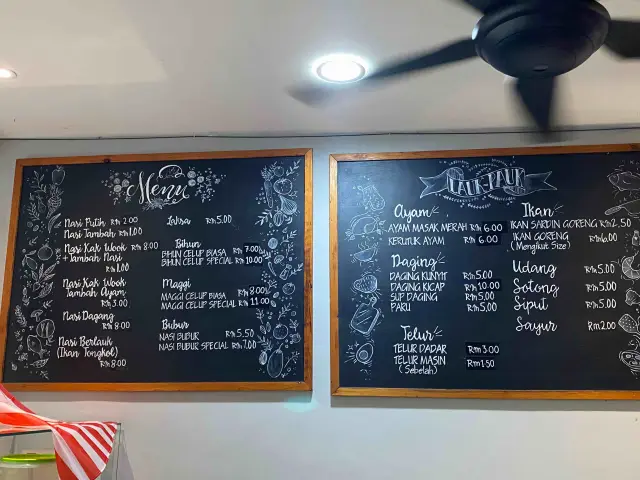 Menu
Nasi Putih Rm 2.00
Nasi Tambah Rm 1.00
Nasi Kak Wook Rm 8.00
+ Tambah Nasi
Rm 1.00
Nasi Kak Wook
Tambah Ayam
Rm 3.00
Nasi Dagang
Rm 8.00
Nasi Berlauk
(Ikan Tongkol)
Rm 8.00
Laksa Rm 5.00
Bihun
BIHUN CELUP BIASA Rm 7.00
BIHUN CELUP SPECIAL Rm 10.00
Maggi
MAGGI CELUP BIASA Rm 8.00
MAGGI CELUP SPECIAL Rm 11.00
Bubur
NASI BUBUR Rm 5.50
NASI BUBUR SPECIAL Rm 7.00
LAUK-PAUK
Ayam
AYAM MASAK MERAH Rm 6.00
KERUTUK AYAM Rm 6.00
Daging
DAGING KUNYIT Rm 5.00
DAGING KICAP Rm 10.00
SUP DAGING Rm 5.00
PARU Rm 5.00
Telur
TELUR DADAR Rm 3.00
TELUR MASIN Rm 1.50
(Sebelah)
Ikan
IKAN SARDIN GORENG Rm 2.50
IKAN GORENG Rm 6.00
(Mengikut Size)
Udang Rm 5.00
Sotong Rm 5.00
Siput Rm 5.00
Sayur Rm 2.00